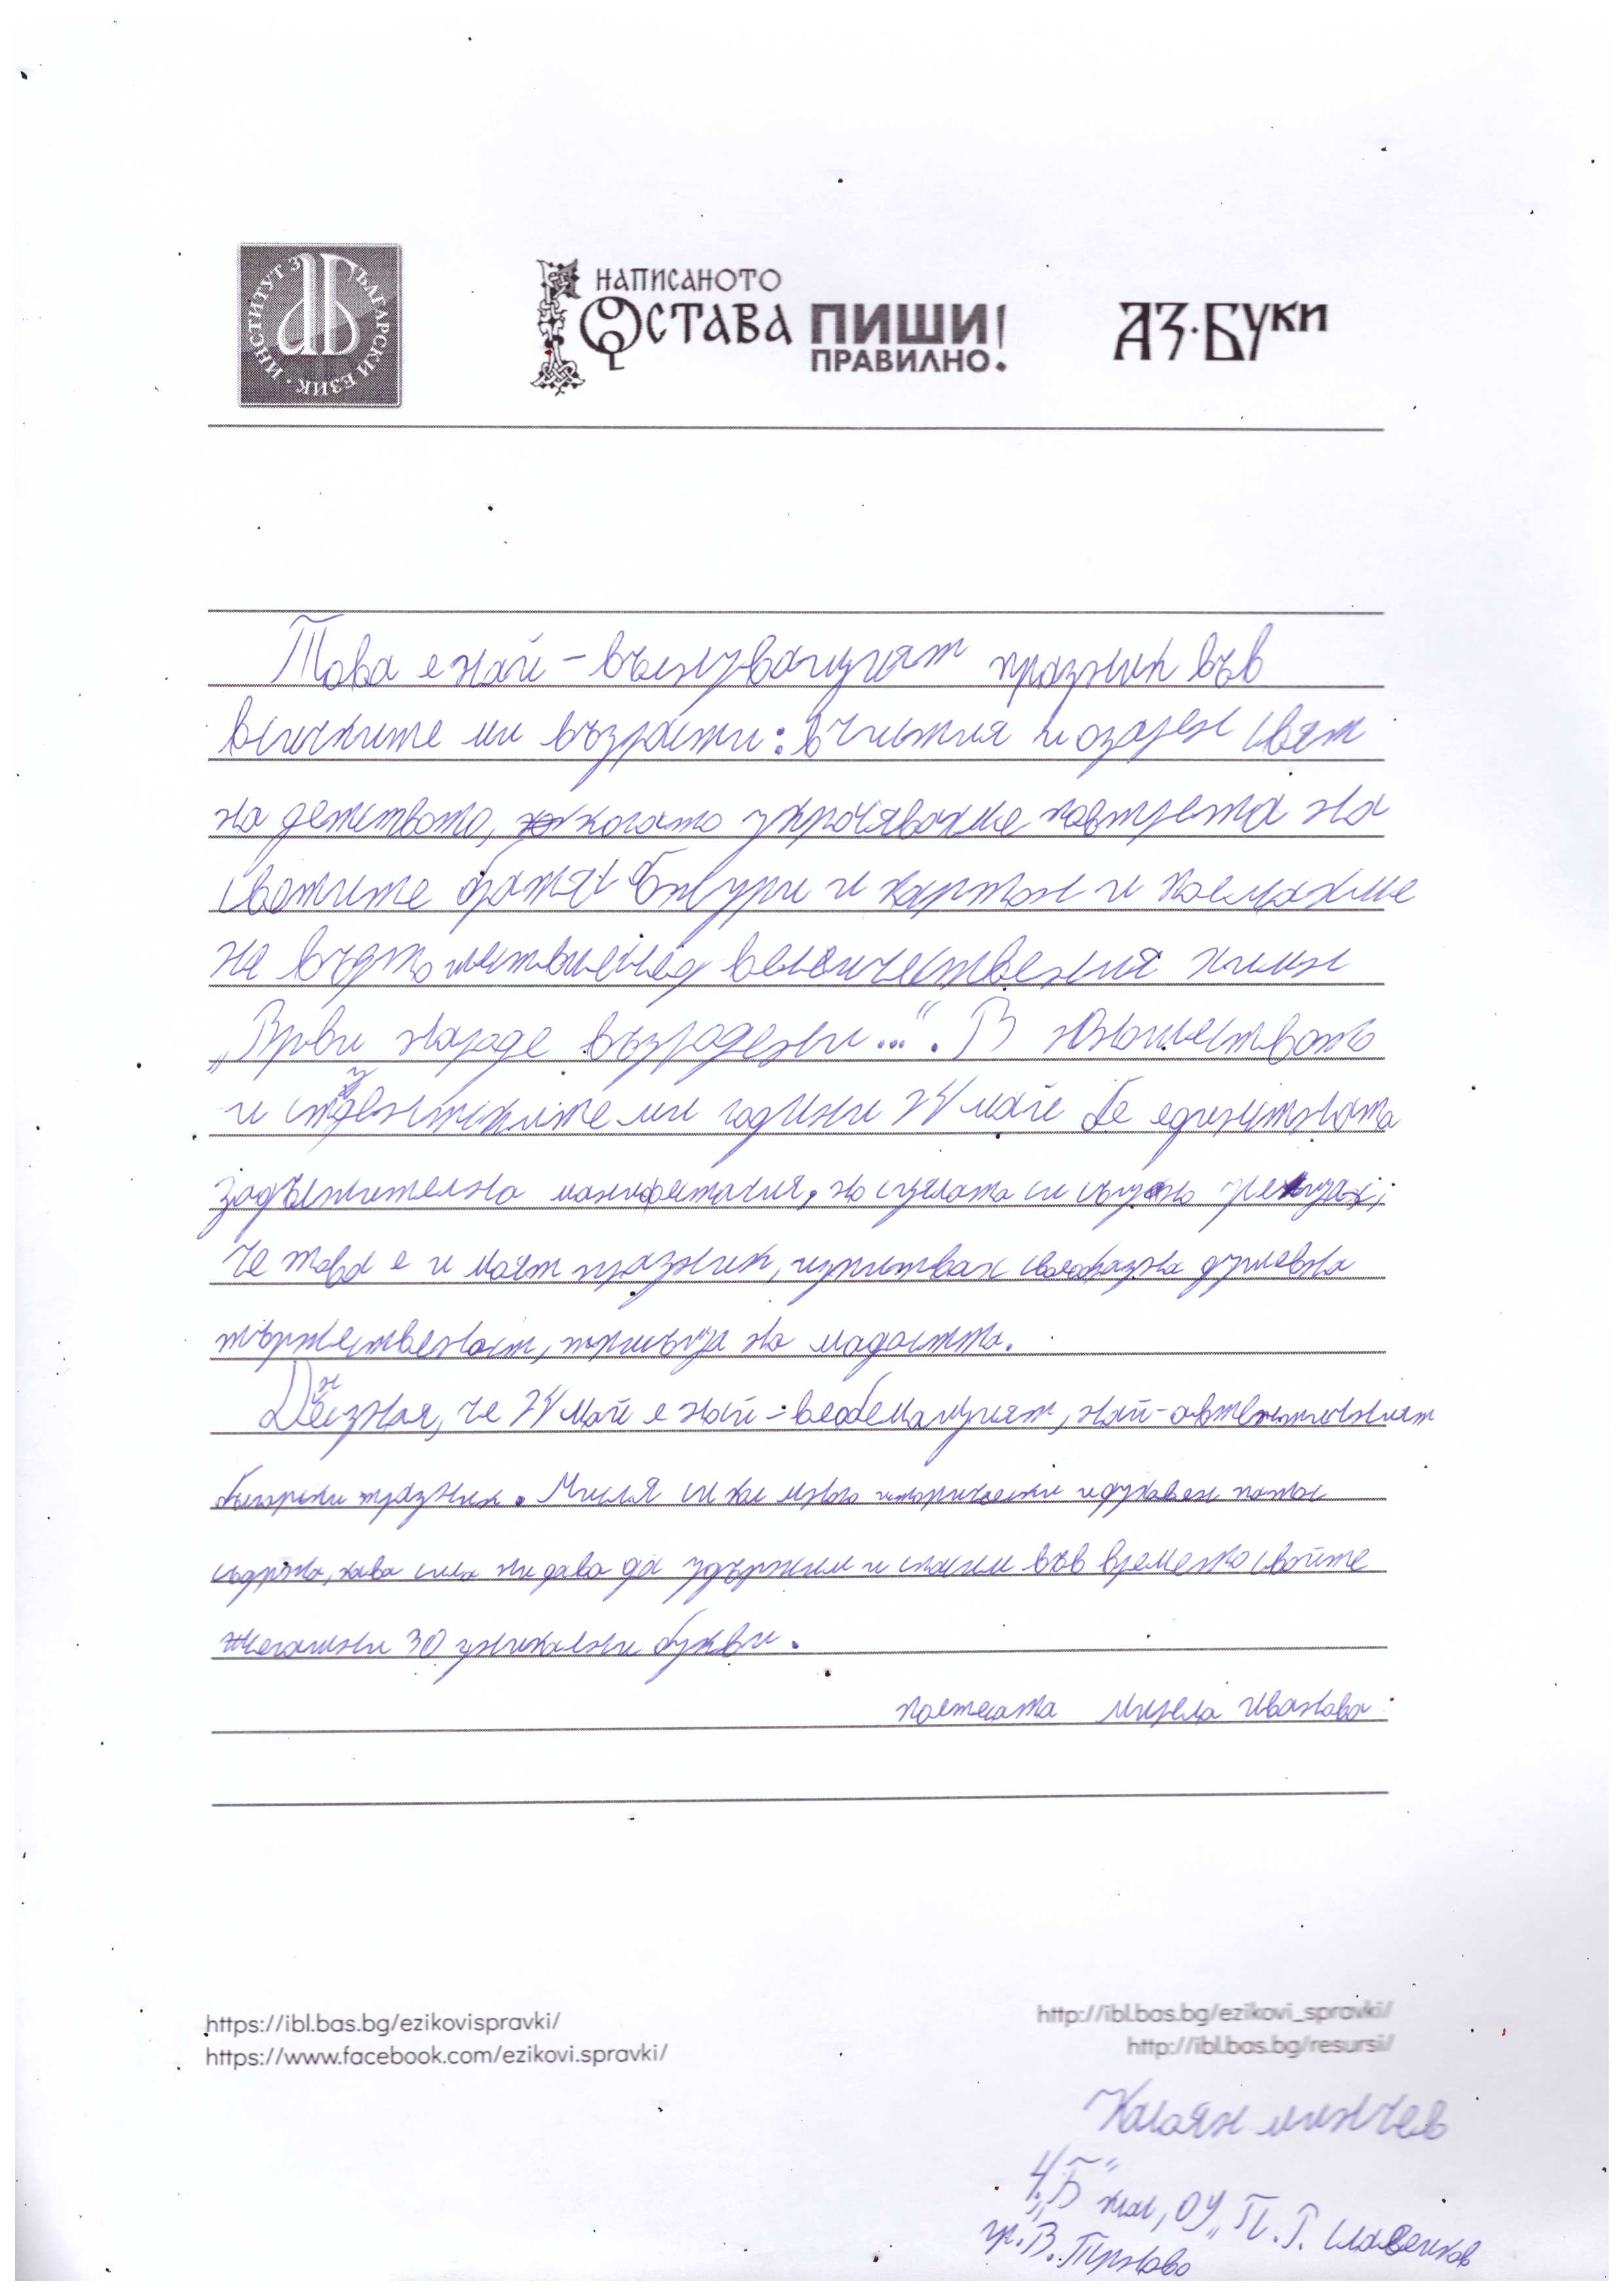 ИНСТИТУТ ЗА БЪЛГАРСКИ ЕЗИК
НАПИСАНОТО
ОСТАВА ПИШИ!
ПРАВИЛНО.
АЗ·БУКИ
Това е най-вълнуващият празник във
всичките ми възрасти: в чистия и озарен свят
на детството, когато украсявахме портрета на
светите братя с божури и картон и поемахме
на величествения химн
„Върви народе възродени...“. В юношеството
и студентските ми години 24 май бе единствената
задължителна манифестация, на
че това е и моят празник, изпитвах своеобразна душевна
тържественост, на младостта.
Днес зная, че 24 май е най-всеобемащият, най-автентичният
български празник. Мисля си колко много исторически и духовен
съдържа, каква сила ни дава да удържим и спасим във времето своите
30 уникални букви.
поетесата Мирела Иванова
https://ibl.bas.bg/ezikovispravki/
https://www.facebook.com/ezikovi.spravki/
http://ibl.bas.bg/ezikovi_spravki/
http://ibl.bas.bg/resursi/
Калоян Минчев
4. „Б“ клас, ОУ „П. Р. Славейков
гр. В. Търново